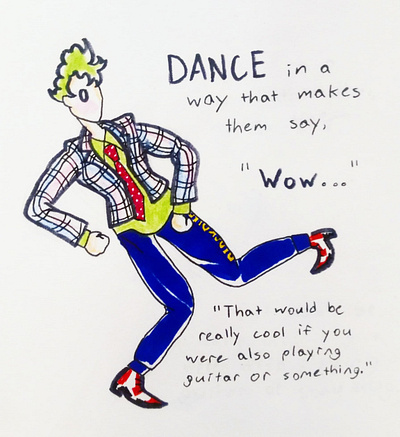 DANCE in a
way that makes
them say,
"Wow..."
"That would be
really cool if you
were also playing
guitar or something."